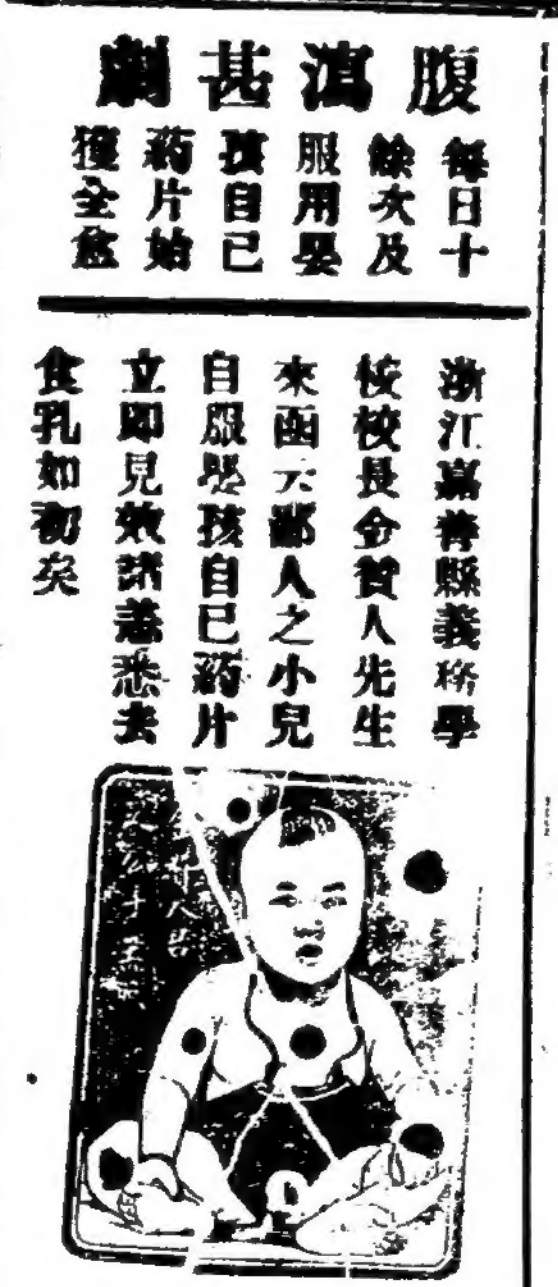 腹瀉甚劇
每日十
餘次及
服用嬰
孩自己
藥片始
獲全愈
浙江嘉善縣義務學
校校長金賀人先生
來函云鄙人之小兒
自服嬰孩自已藥片
立即見效諸恙悉去
食乳如初矣